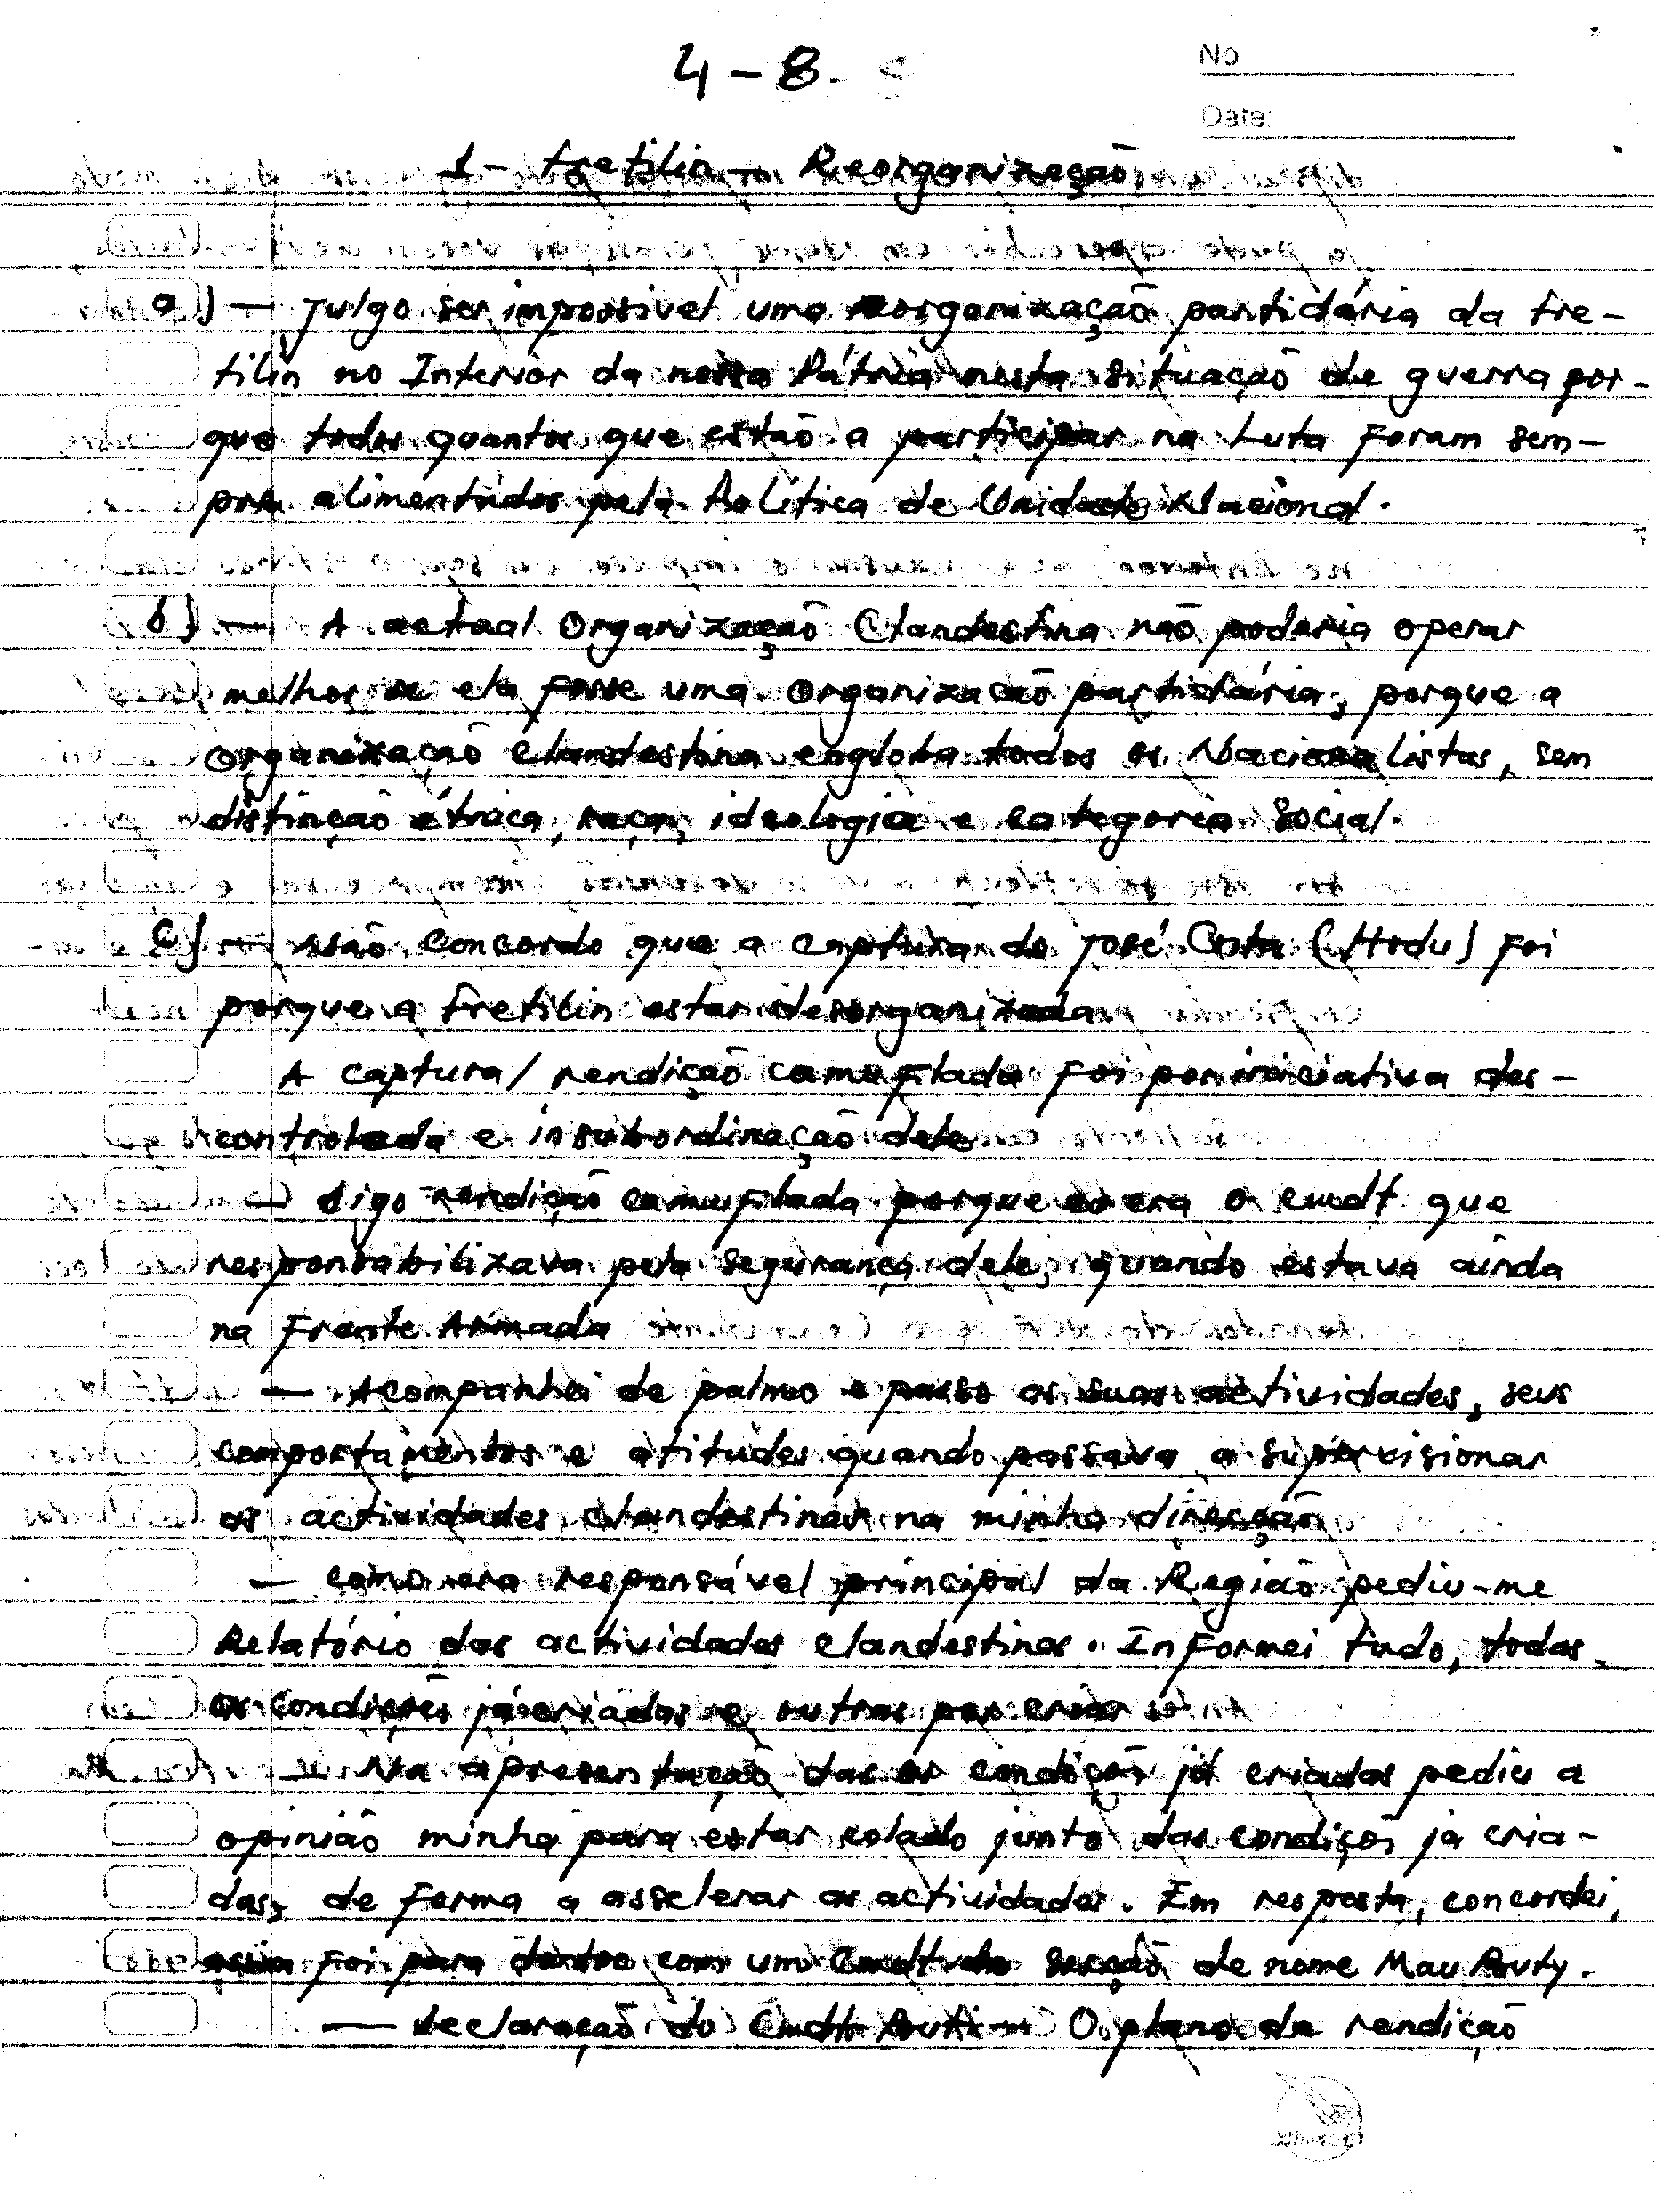 4-8.
No
Date:
1- Fretilin - Reorganização
a) — Julgo ser impossivel uma reorganização partidária da Fre-
tilin no Interior da nossa Pátria nesta situação de guerra por-
que todos quantos que estão a participar na Luta Foram sem-
pre alimentados pela Politica de Unidade Nacional.
b) — A actual Organização Clandestina não poderia operar
melhor se ela fosse uma Organização partidária, porque a
Organização clandestina engloba todos os Nacionalistas, sem
distinção étnica, raça, ideologia e categoria Social.
c) — Não concordo que a captura do José Costa (Hodu) Foi
porque a Fretilin estar desorganizada
A captura/rendição camuflada Foi por iniciativa des-
controlada e insubordinação dele
— digo rendição camuflada porque eu era o cmdt que
responsabilizava pela segurança dele, quando estava ainda
na Frente Armada
— Acompanhei de palmo e passo as suas actividades, seus
comportamentos e atitudes quando passava a supervisionar
as actividades clandestinas na minha direcção
— como era responsável principal da Região pediu-me
Relatório das actividades clandestinas. Informei tudo, todas
as condições já criadas e outras por criar
— Na apresentação das as condição já criadas pediu a
opinião minha para estar colado junto das condições já cria-
das, de forma a asselerar as actividades. Em resposta, concordei,
assim Foi para dentro com um Cmdt de Secção de nome Mau Buty.
— declaração do Cmdt Buti — O plano da rendição